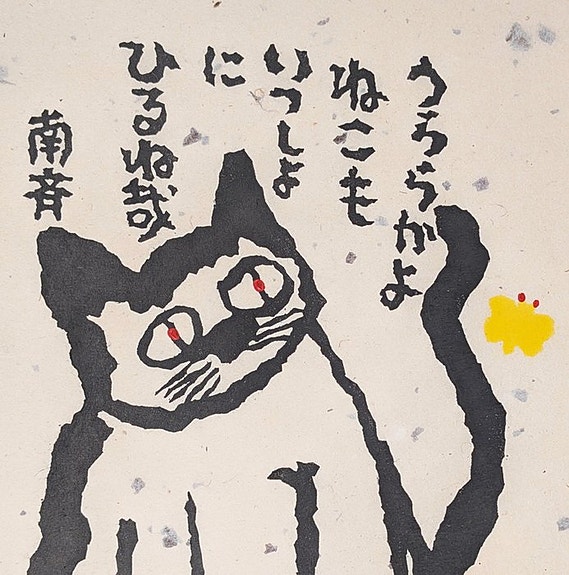 うららかよ
ねこも
いつしよ
に
ひるね哉
南斉